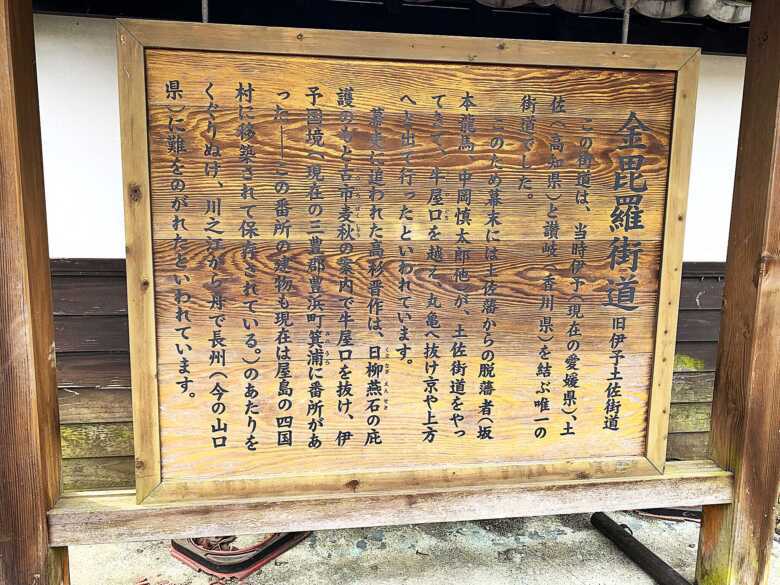 金毘羅街道 旧伊予土佐街道
この街道は、当時伊予(現在の愛媛県)、土
佐(高知県)と讃岐(香川県)を結ぶ唯一の
街道でした。
このため幕末には土佐藩からの脱藩者(坂
本龍馬、中岡慎太郎他)が、土佐街道をやっ
てきて、牛屋口を越え、丸亀へ抜け京や上方
へと出て行ったといわれています。
幕吏に追われた高杉晋作は、日柳燕石の庇
護のもと古市麦秋の案内で牛屋口を抜け、伊
予国境(現在の三豊郡豊浜町箕浦に番所があ
った――この番所の建物も現在は屋島の四国
村に移築されて保存されている。)のあたりを
くぐりぬけ、川之江から舟で長州(今の山口
県)に難をのがれたといわれています。